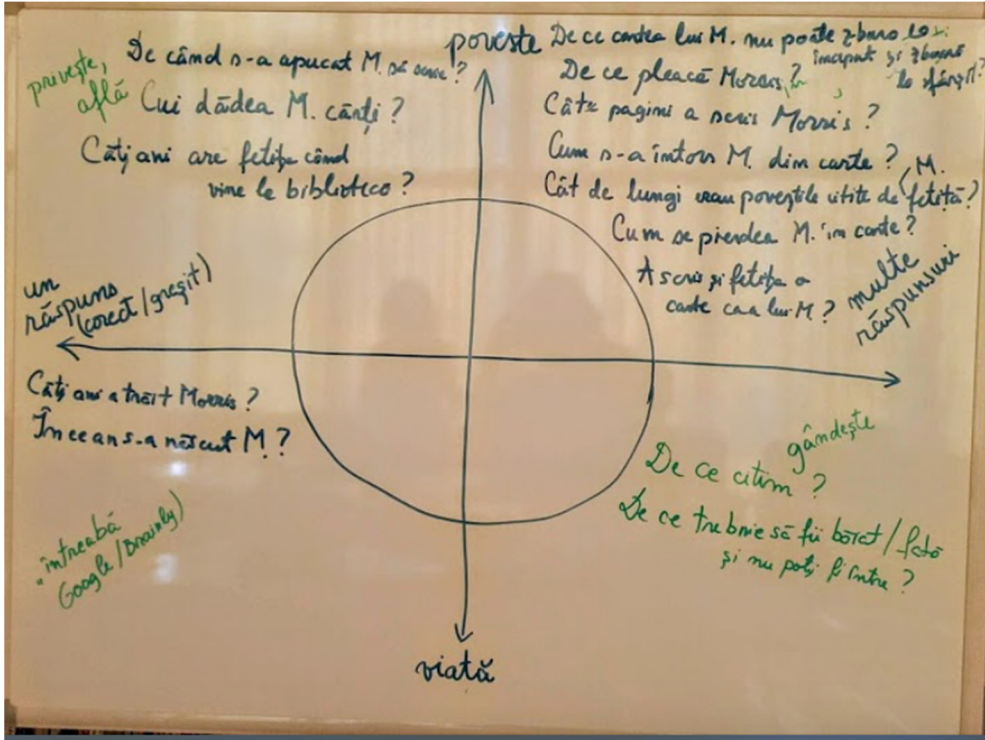 poveste
privește,
află
De când s-a apucat M. să scrie?
Cui dădea M. cărți?
Câți ani are fetița când
vine la bibliotecă?
De ce cartea lui M. nu poate zbura la
început și zboară
la sfârșit?
De ce pleacă Morris?
Câte pagini a scris Morris?
Cum s-a întors M. din carte?
M.
Cât de lungi erau poveștile citite de fetiță?
Cum se pierdea M. în carte?
A scris și fetița o
carte ca a lui M?
multe
răspunsuri
un
răspuns
(corect/greșit)
Câți ani a trăit Morris?
În ce an s-a născut M?
întreabă
Google/Brainly)
gândește
De ce citim?
De ce trebuie să fii băiat/fată
și nu poți fi între?
viată